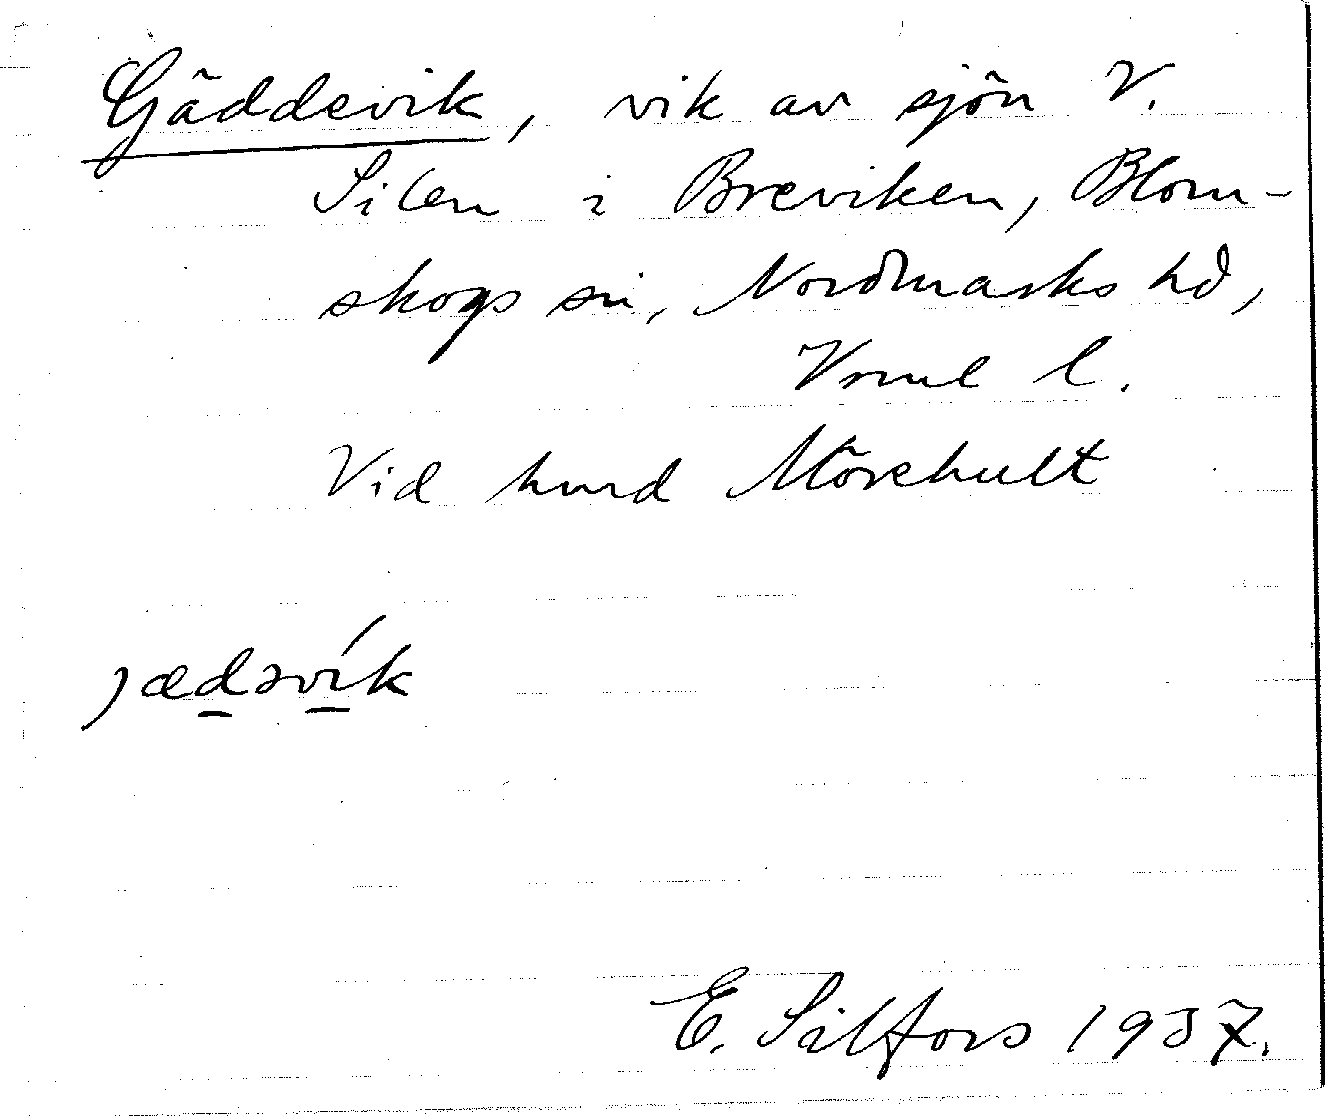 Gäddevik, vik av sjön V.
Silen i Breviken, Blom-
skogs sn, Nordmarks hd,
Vrml l.
Vid hmd Mörehult
jæd̲əv̲ík
E. Silfors 1937.